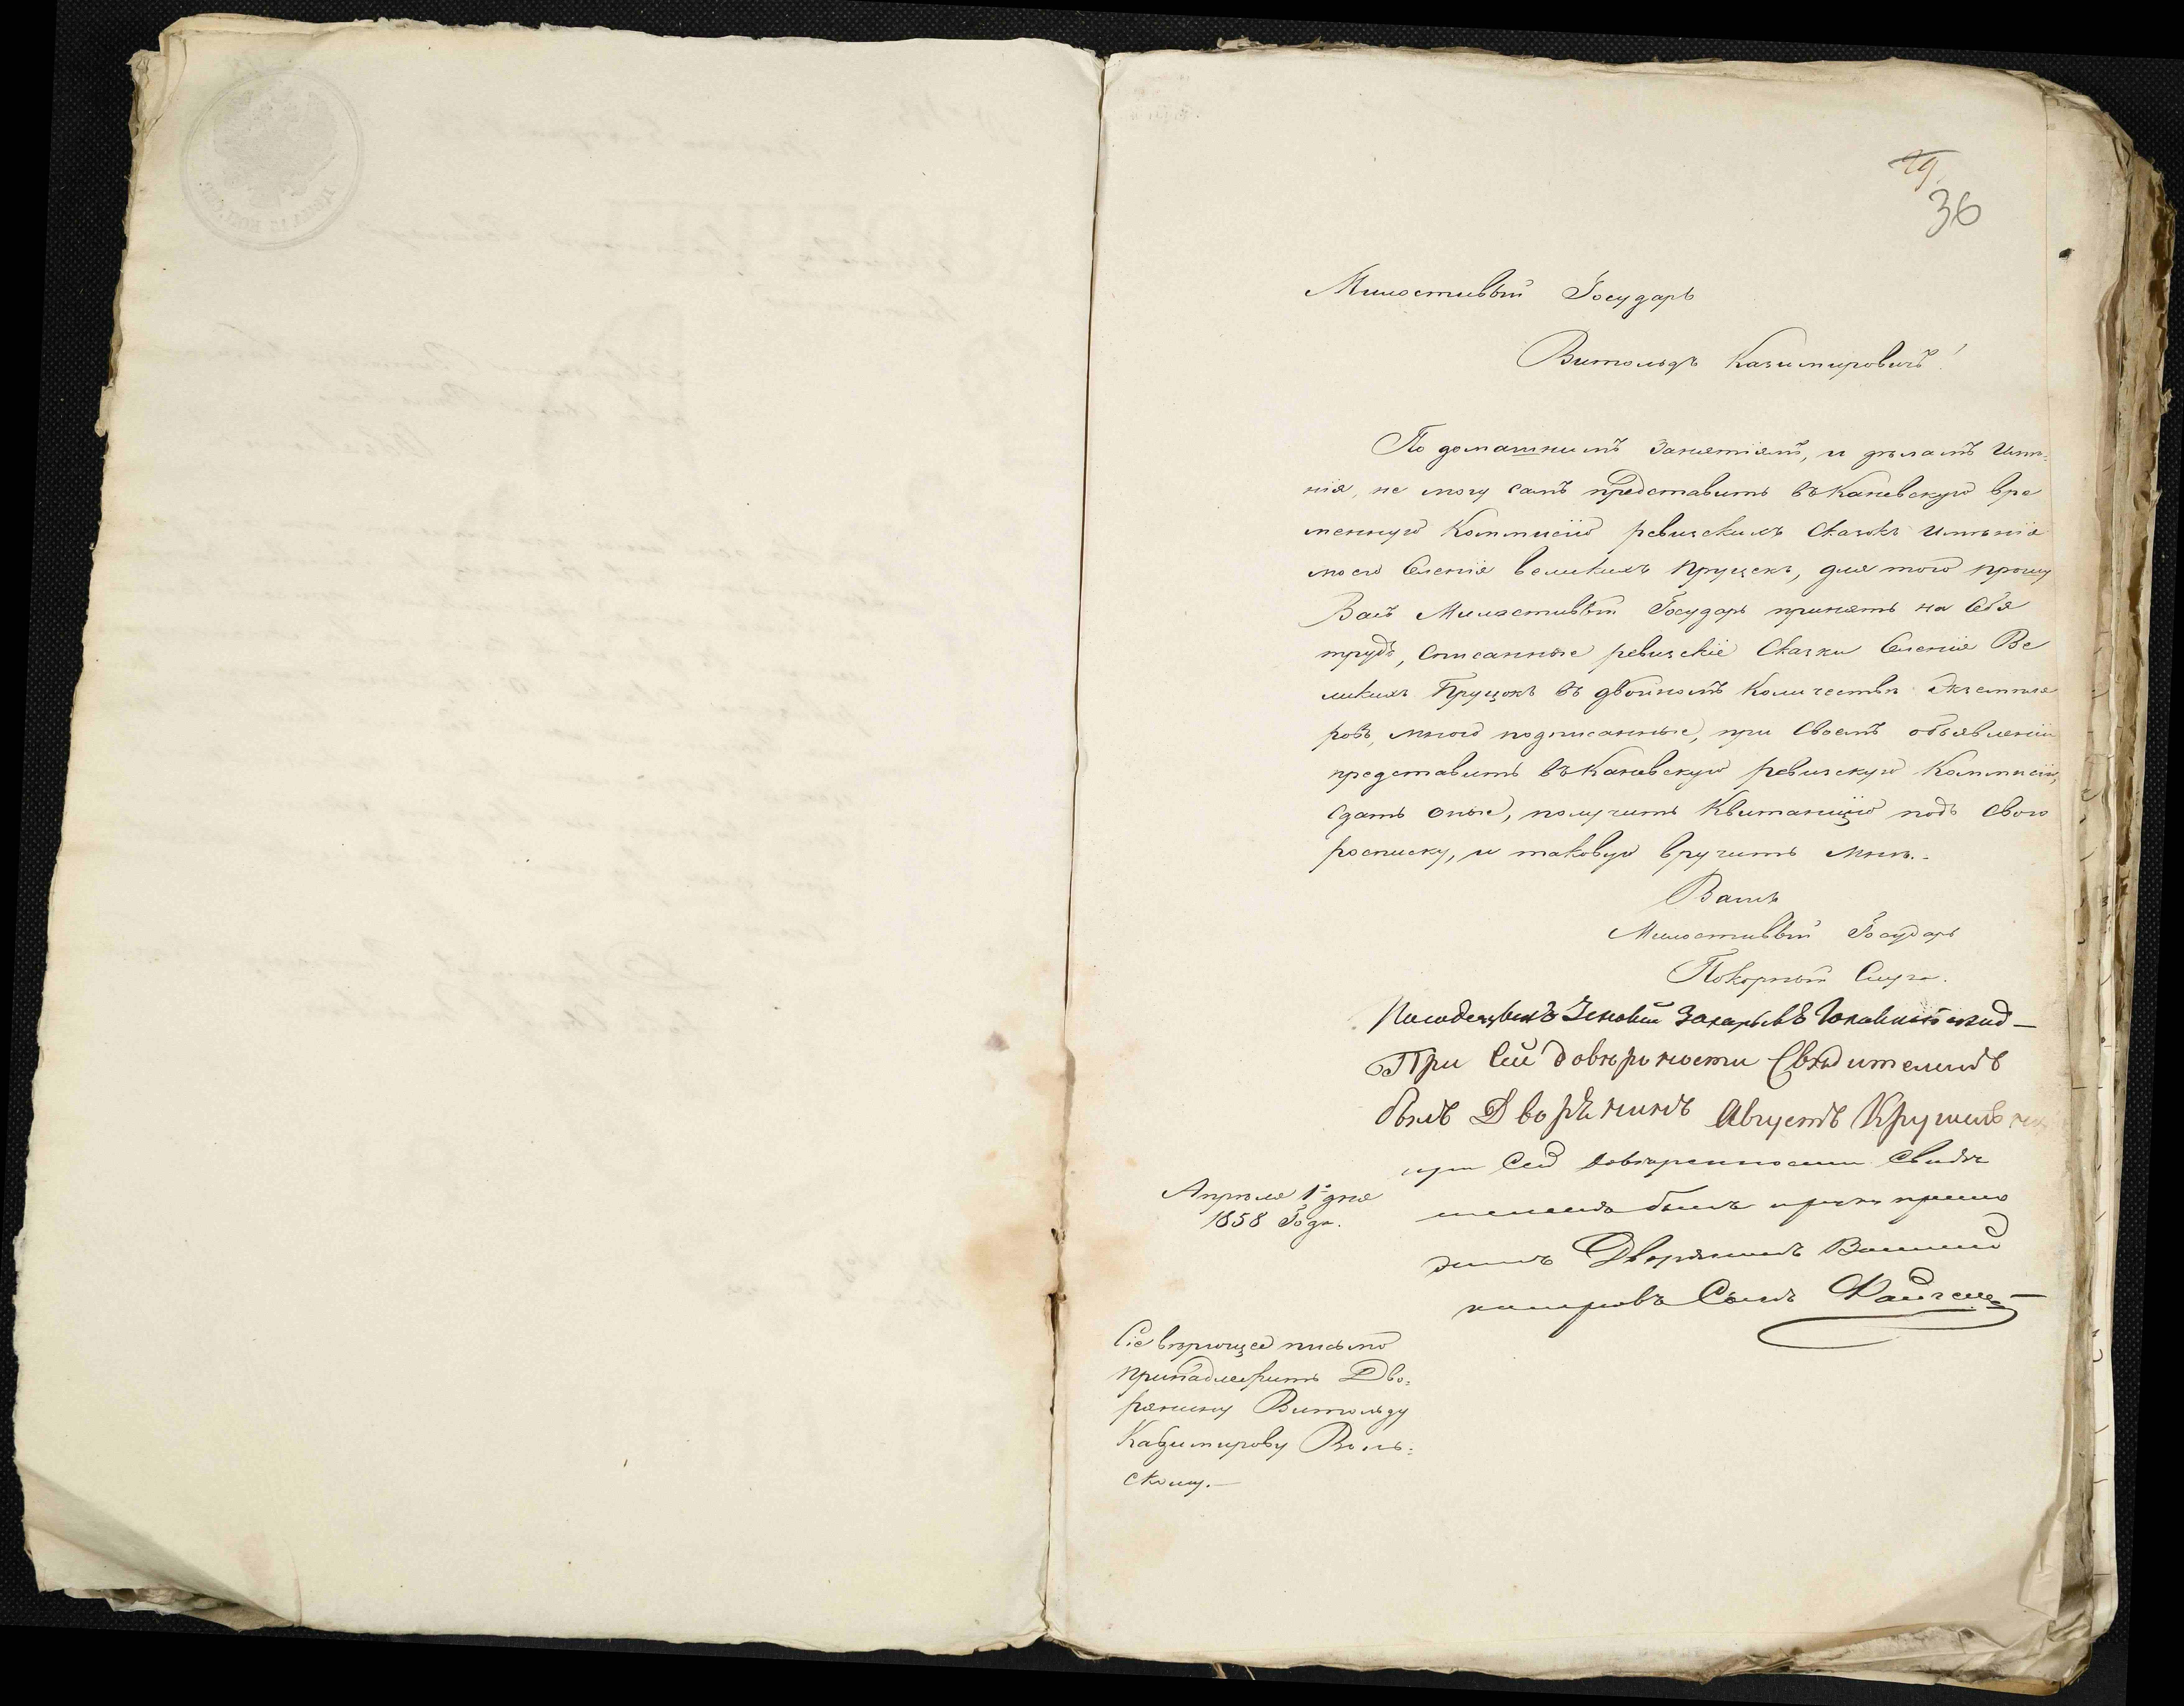 29
36
Милостивый Государь
Витольдъ Казимировичъ!
По домашнимъ занятіямъ, и дѣламъ Имѣ-
нія, не могу самъ представить въ Каневскую вре
менную Коммисію ревизскихъ Сказокъ Имѣнія
моего Селенія великихъ Прусцекъ, для того прошу
Васъ Милостивый Государь принять на Себя
трудъ, Списанные ревизскіе Сказки Селенія Ве
ликихъ Пруцокъ въ двойномъ Количествѣ Экземпля
ровъ, мною подписанные, при Своемъ объявленіи
представить въ Каневскую ревизскую Коммисію,
сдать оные, получить Квитанцію подъ Свою
росписку, и таковую вручить мнѣ.-
Вашъ
Милостивый Государь
Покорный Слуга.
Зеновій Захарьевъ
При сей довѣрѣности Свѣдителимъ
былъ Дворѣнинъ Августъ
при Сей довѣренности Свидѣ
телемъ былъ
Дворянинъ
Сынъ
Апрѣля 1го дня
1858 Года.
Сіе вѣрющее письмо
принадлежитъ Дво-
рянину Витольду
Казимирову Воль-
скому.-